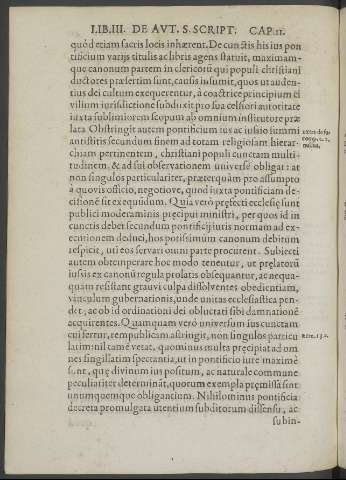 LIB.III. DE AVT. S. SCRIPT. CAP.II.
quòd etiam sacris locis inhærent. De cunctis his ius pon
tificium varijs titulis ac libris agens statuit, maximam-
que canonum partem in clericorũ qui populi christiani
ductores præsertim sunt, causis insumit, quos ut auden-
tius dei cultum exequerentur, à coactrice principum ci
vilium iurisdictione subduxit pro sua celsiori autoritate
iuxta sublimiorem scopum ab omnium institutore præ
lata. Obstringit autem pontificium ius ac iussio summi
antistitis secundum finem ad totam religiosam hierar-
chiam pertinentem, christiani populi cunctam multi-
tudinem, & ad sui observationem universè obligat: at
non singulos particulariter, præterquàm pro assumpto
à quovis officio, negotiove, quod iuxta pontificiam de-
cisionẽ sit exequidum. Quia verò præfecti ecclesiæ sunt
publici moderaminis præcipui ministri, per quos id in
cunctis debet secundum pontificij iuris normam ad ex-
ecutionem deduci, hos potissimùm canonum debitum
respicit, uti eos servari omni parte procurent. Subiecti
autem obtemperare hoc modo tenentur, ut prælatorũ
iussis ex canonũ regula prolatis obsequantur, ac nequa-
quàm resistant gravi culpa dissolventes obedientiam,
vinculum gubernationis, unde unitas ecclesiastica pen-
det, ac ob id ordinationi dei obluctati sibi damnationẽ
acquirentes. Quamquam verò universum ius cunctam
cui fertur, rempublicam astringit, non singulos particu
latim, nil tamẽ vetat, quominus multa præcipiat ad om
nes singillatim spectantia, ut in pontificio iure maximè
sunt, quę divinum ius positum, ac naturale commune
peculiariter determinãt, quorum exempla præmissa sint
unumquemque obligantium. Nihilominus pontificia
decreta promulgata utentium subditorum dissensu, ac
subin-
Rom. 13. c.